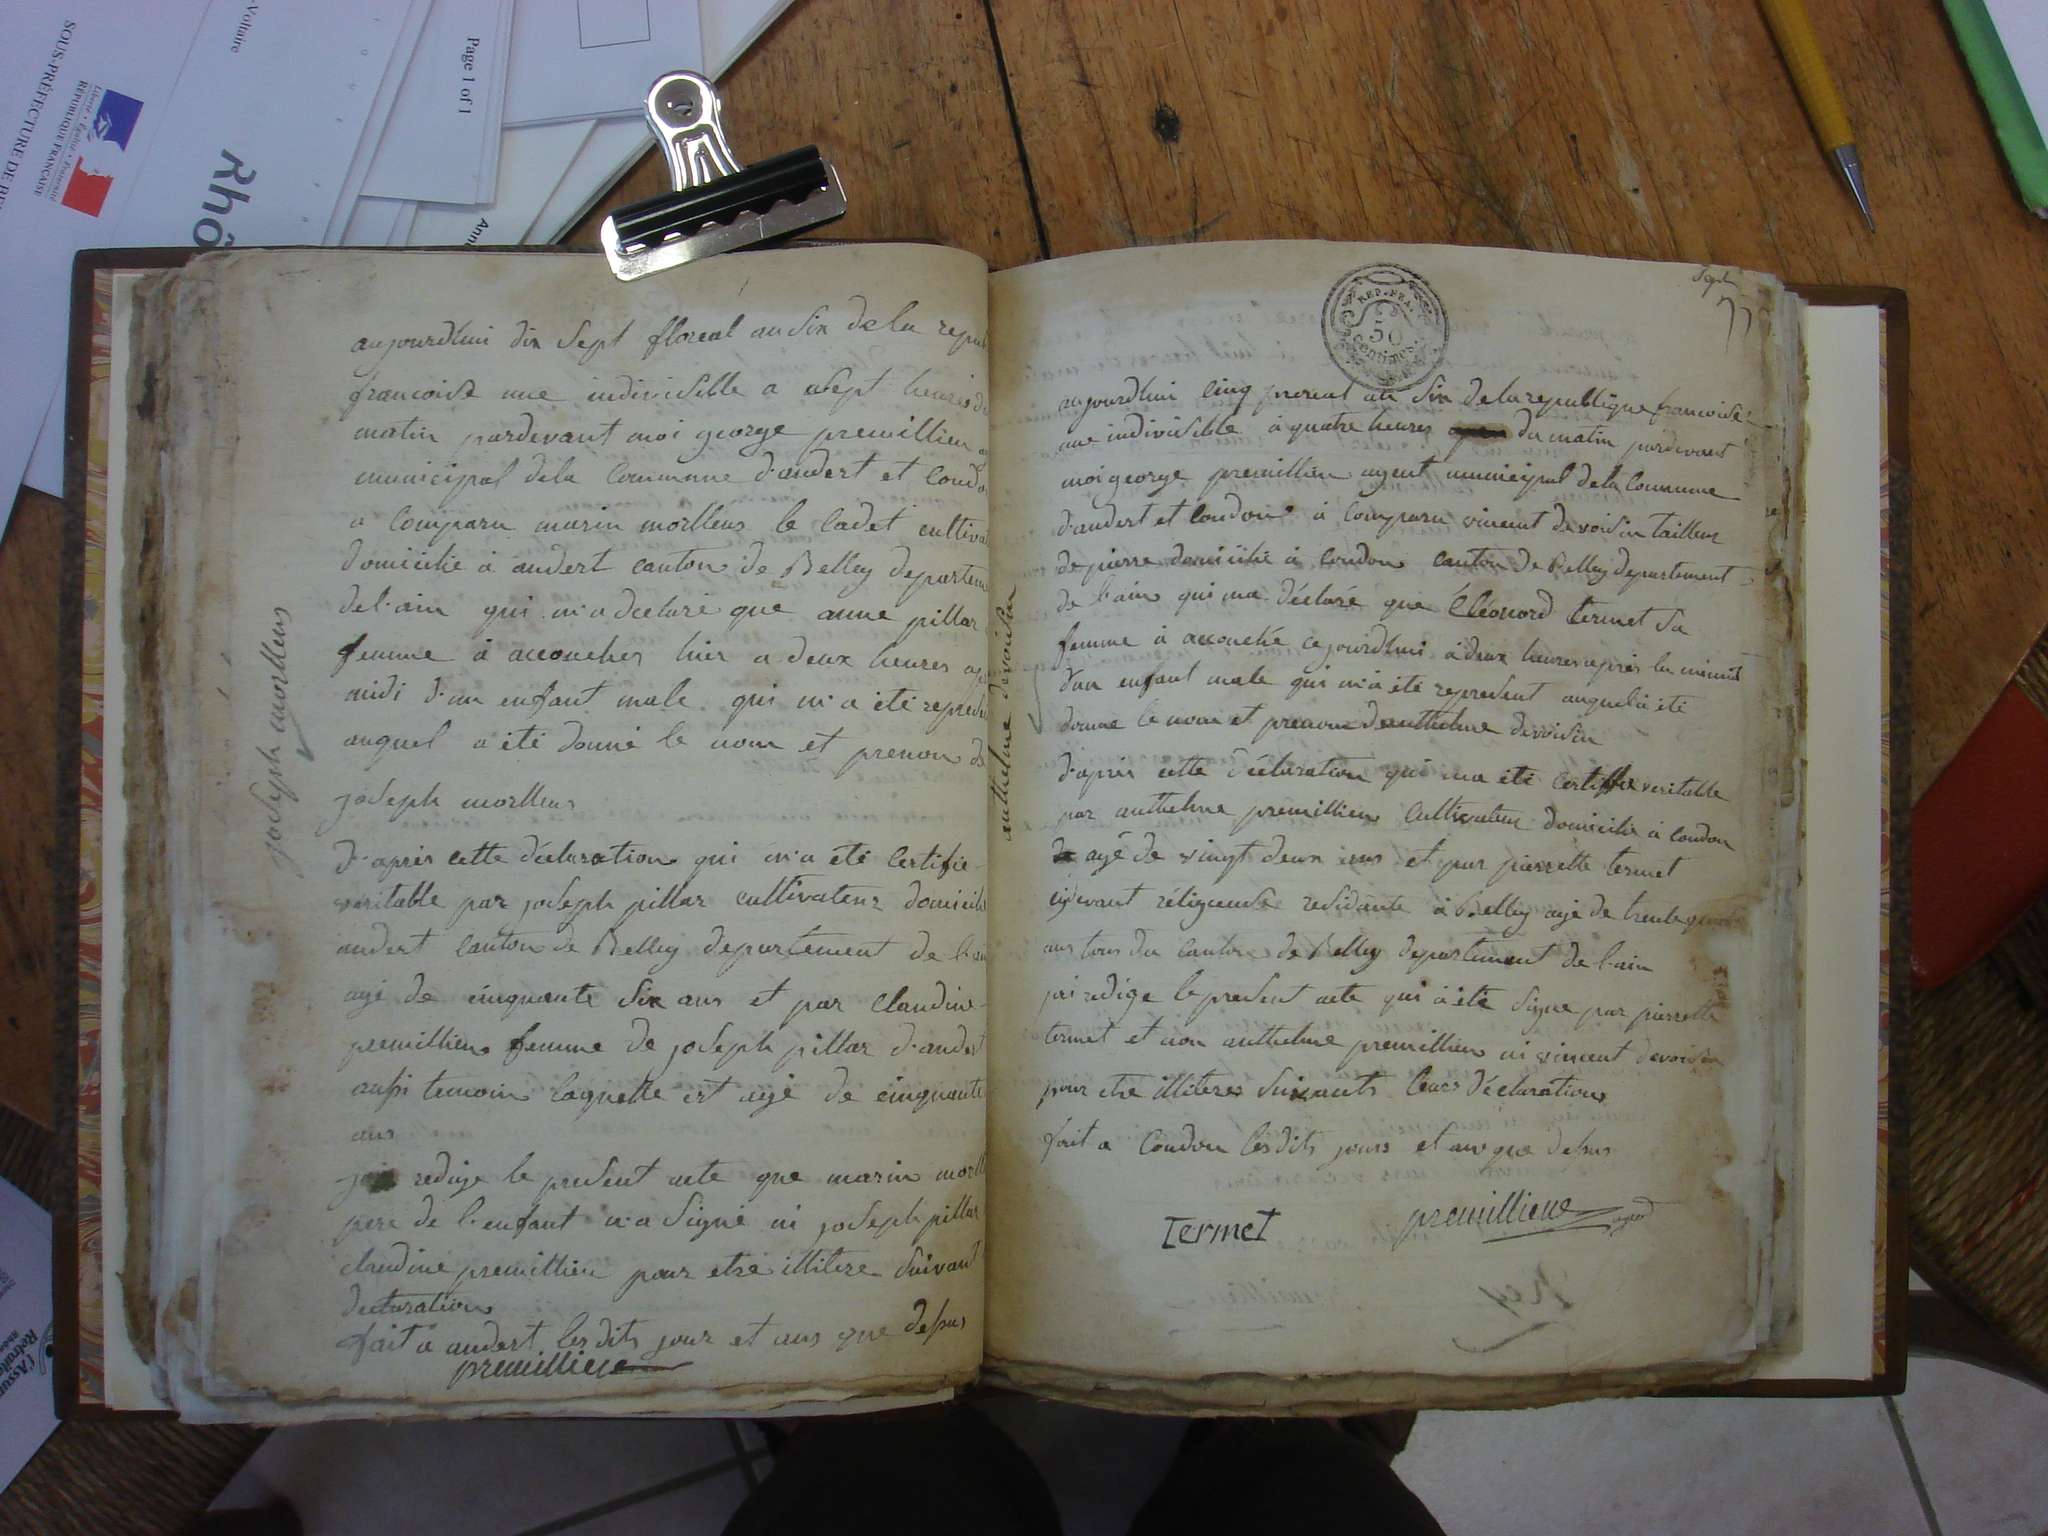 -Voltaire
SOUS-PRÉFECTURE DE BE
Liberté • Égalité • Fraternité
RÉPUBLIQUE FRANÇAISE
Rhô
Page 1 of 1
Ann
joseph morlleus
aujourdhui dix sept floreal an six de la repub
francoise une indivisible a sept heures du
matin pardevant moi george premillieu
municipal dela Commune d'andert et Condo
a Comparu marin morlleus le Cadet cultivat
domicilié à andert canton de Belley departem
de l'ain qui m'a declaré que anne pillar
femme à accoucher hier a deux heures ap
midi d'un enfant male qui m'a été represe
auquel a été donné le nom et prenon de
joseph morlleus
d'apris cette déclaration qui m'a été Certifié
veritable par joseph pillar cultivateur domicilié
andert Canton de Belley departement de l'ain
agé de cinquante six ans et par Claudine
premillieu femme de joseph pillar d'andert
aussi temoin laquelle est agé de cinquante
ans
jai redigé le present acte que marin morll
pere de l'enfant n'a signé ni joseph pillar
claudine premillieu pour etre illitere suivant
declaration
fait à andert lesdits jour et ans que dessus
premillieu
anthelme devoisin
REP. FRA.
50
centimes
Sept
aujourdhui cinq prereal an six de la republique francoise
une indivisible à quatre heures du matin pardevant
moi george premillieu agent municipal de la Commune
d'andert et Condon à Comparu vincent devoisin tailleur
de pierre domicilié à Condon canton de Belley departement
de l'ain qui ma déclaré que Eléonord termet sa
femme à accouché cejourdhui à deux heures après la minuit
d'un enfant male qui m'à été represent auquel à été
donne le nom et prenom d'anthelme devoisin
d'apris cette déclaration qui ma été Certiffié veritable
par anthelme premillieu Cultivateur domicilié à Condon
agé de vingt deux ans et par pierrette termet
cydevant réligieuse residante à Belley agé de trente
ans tous du canton de Belley departement de l'ain
jai redigé le present acte qui à été signe par pierrette
termet et non anthelme premillieu ni vincent devoisin
pour etre illiteres suivants leurs déclaration
fait a Condon lesdits jours et an que dessus
Termet
premillieu agent